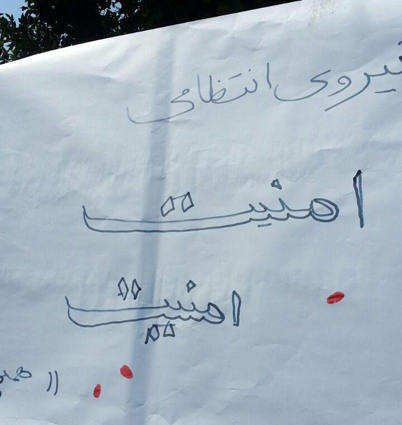 نیروی انتظامی
امنیت
امنیت